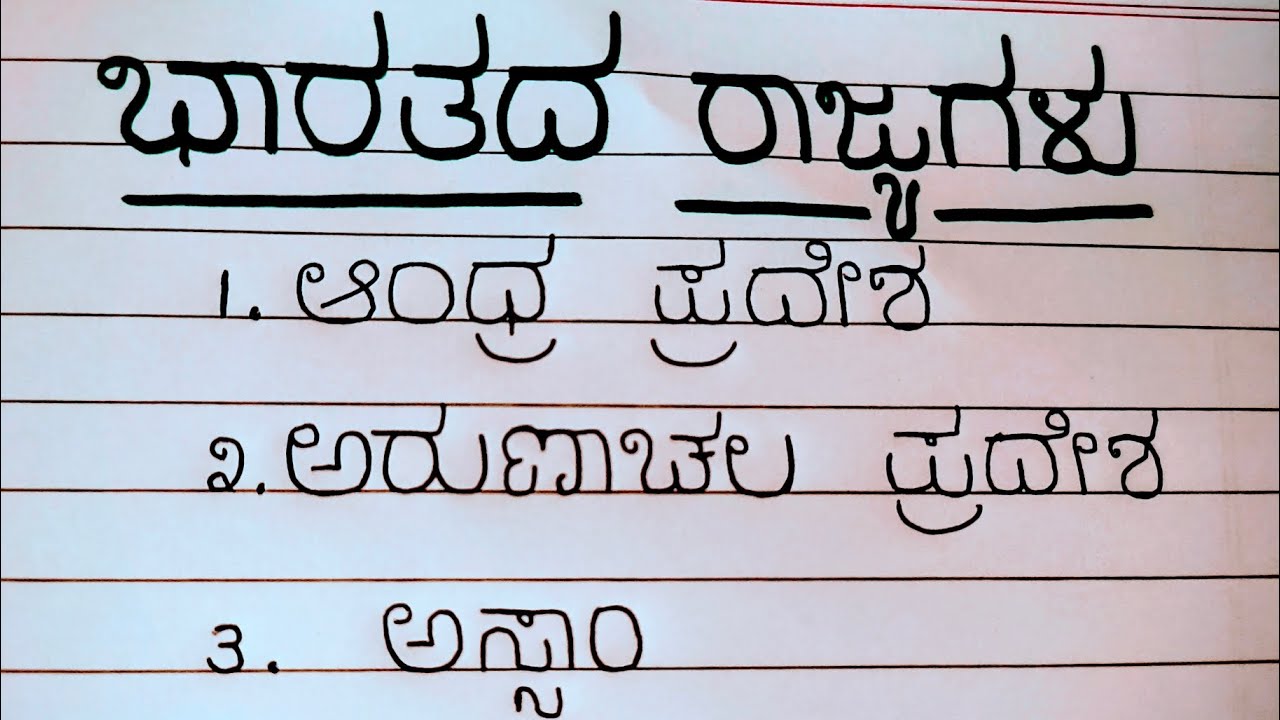 ಭಾರತದ ರಾಜ್ಯಗಳು
1. ಆಂಧ್ರ ಪ್ರದೇಶ
೨. ಅರುಣಾಚಲ ಪ್ರದೇಶ
3. ಅಸ್ಸಾಂ